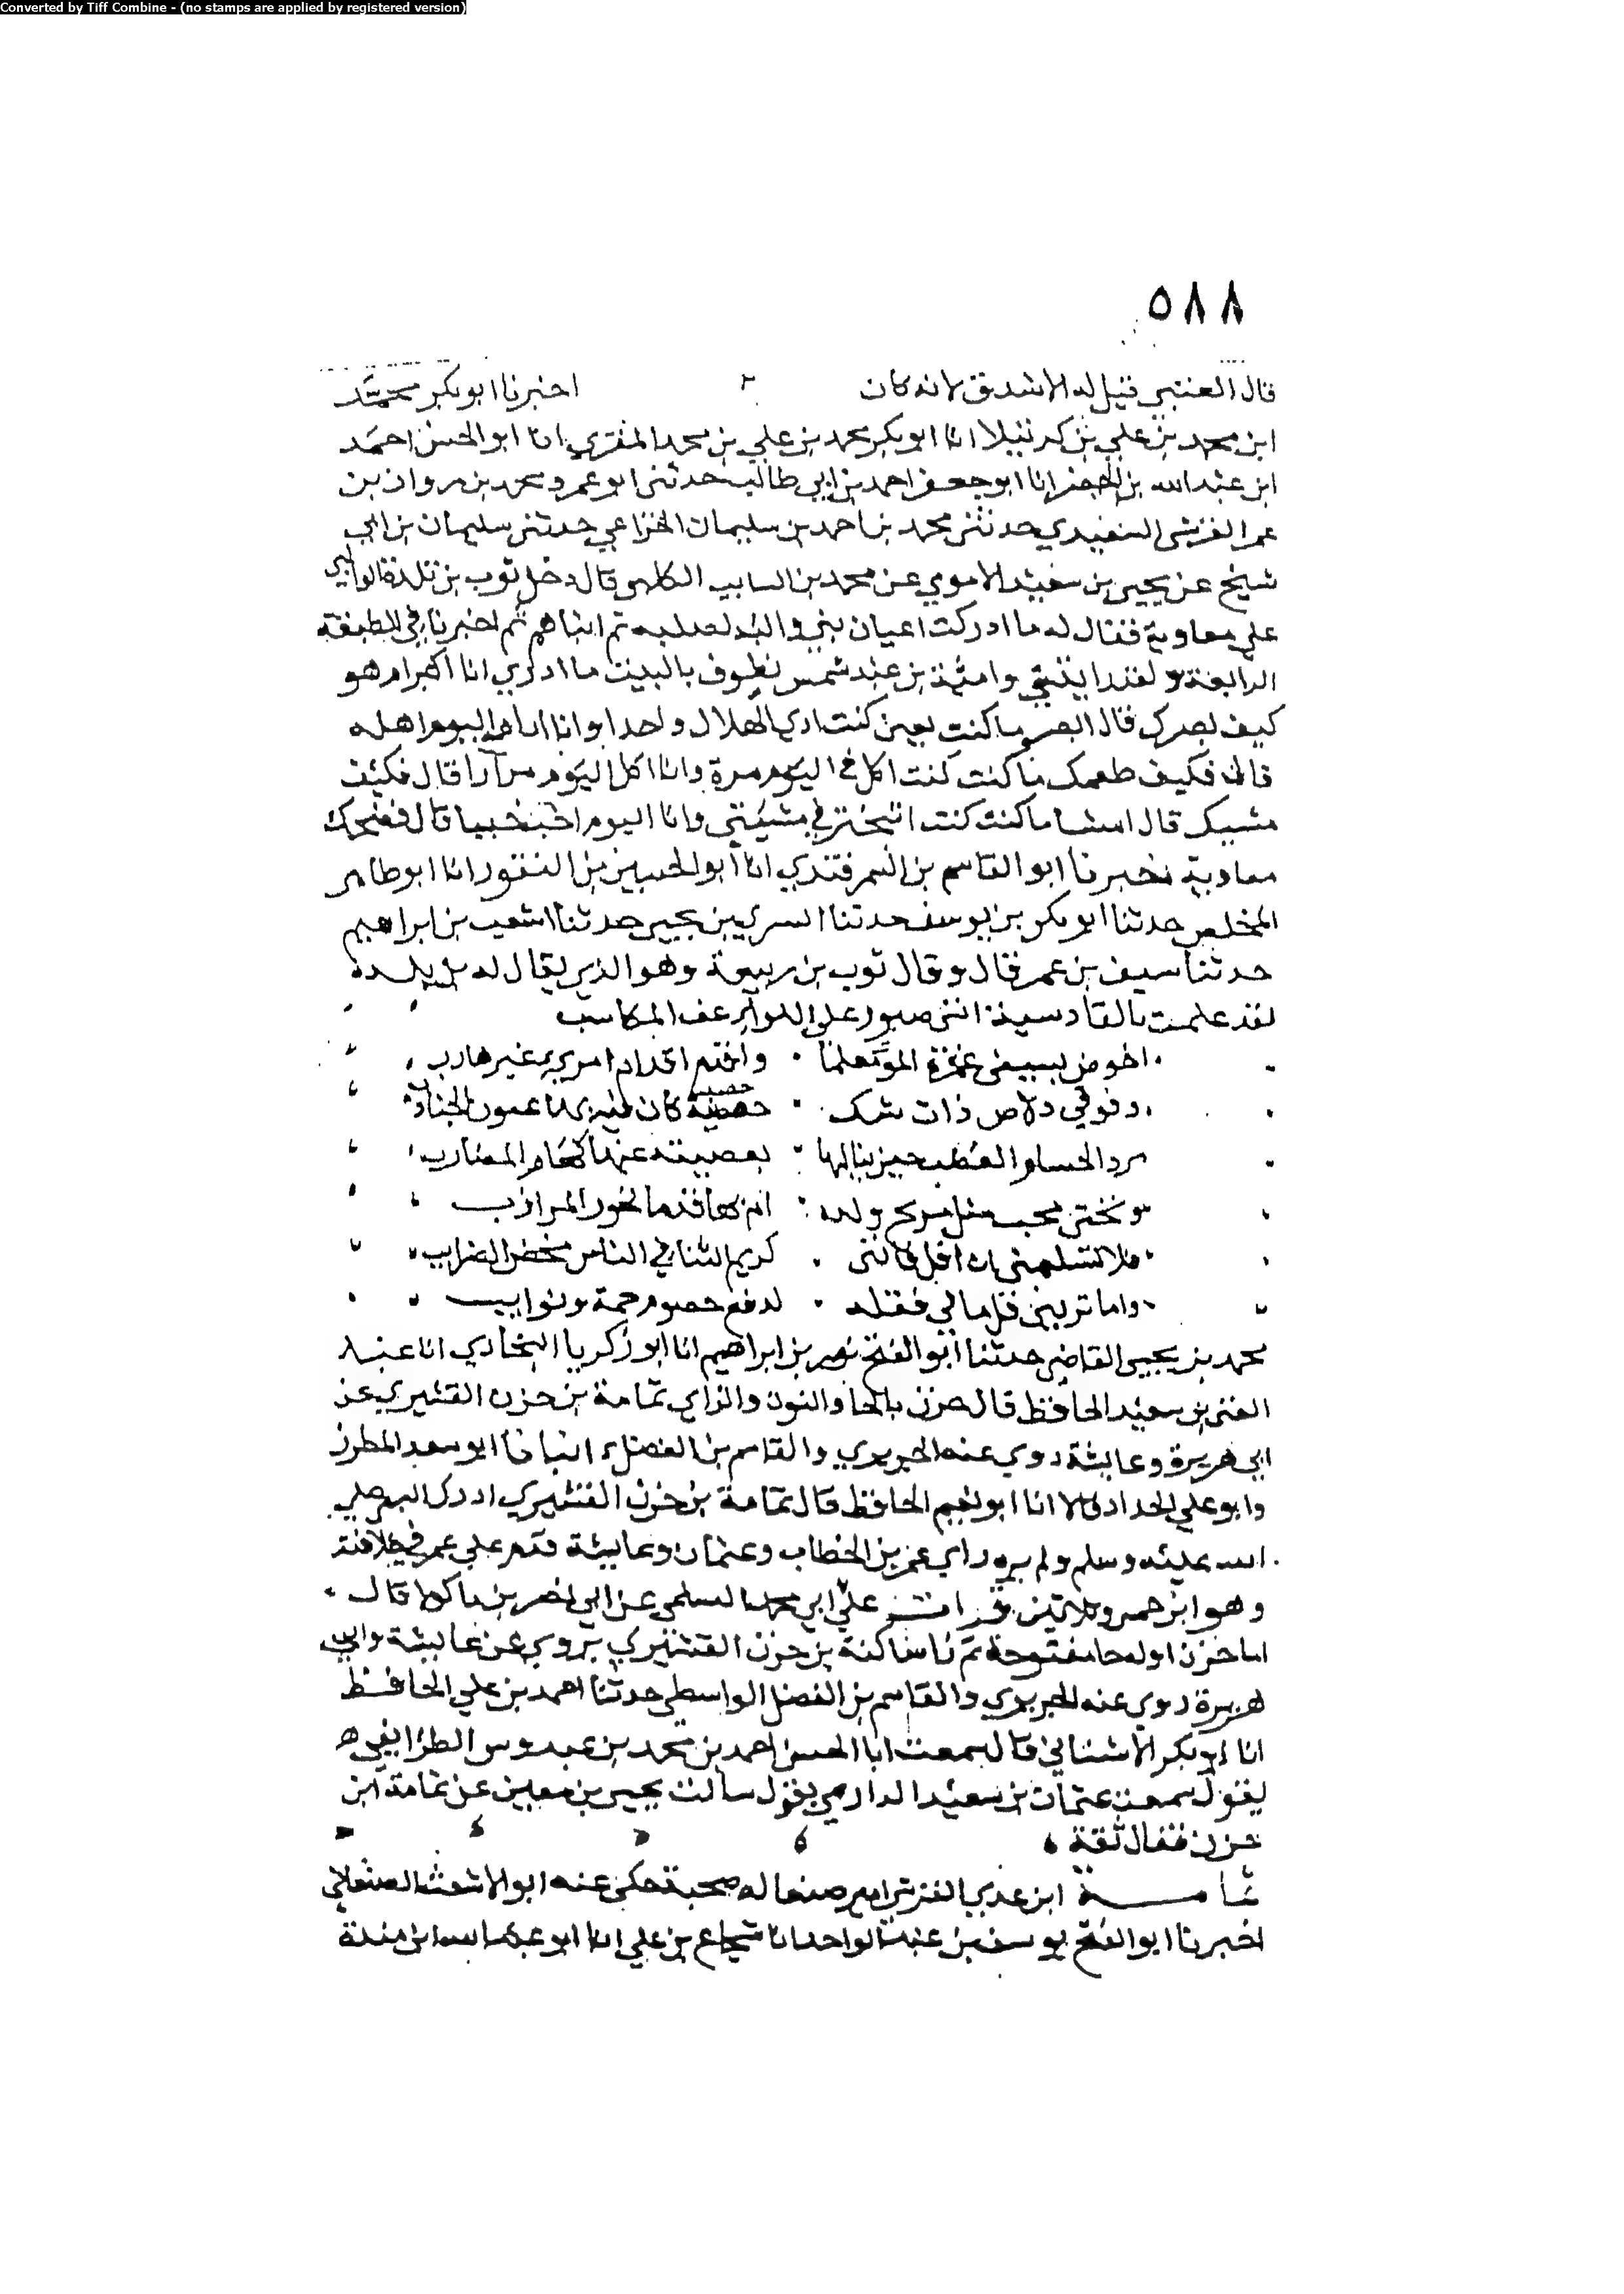 Converted by Tiff Combine - (no stamps are applied by registered version)
٥٨٨
قال العتبي فقيل له الاشدق لانه كان اخبرنا ابو بكر محمد
ابن محمد بن علي بن كرتيلا انا ابو بكر محمد بن علي بن محمد المقري انا ابو الحسن احمد
ابن عبد الله بن الخضر انا ابو جعفر احمد بن ابي طالب حدثني ابو عمرو محمد بن مروان بن
عمر القرشي السعيدي حدثني محمد بن احمد بن سليمان الخزاعي حدثني سليمان بن ابي
شيخ عن يحيى بن سعيد الاموي عن محمد بن السايب الكلبي قال دخل ثوب بن تلدة الوالبي
على معاوية فقال له ما ادركت اعيان بني والبة ثم ابناهم ثم اخبرنا في الطبقة
الرابعة ولقد رايتني وامية بن عبد شمس نطوف بالبيت ما ادري انا اكبر ام هو
كيف بصرك قال ابصر ما كنت بعين كنت اري الهلال واحدا وانا اراه اليوم اهله
قال فكيف طعمك ما كنت كنت اكل في اليوم مرة وانا اكل اليوم مرارا قال فكيف
مشيك قال امشا ما كنت كنت اتبختر في مشيتي وانا اليوم اخب خببا قال فضحك
معاوية اخبرنا ابو القاسم بن السمرقندي انا ابو الحسين بن النقور انا ابو طاهر
المخلص حدثنا ابو بكر بن يوسف حدثنا السري بن يحيى حدثنا شعيب بن ابراهيم
حدثنا سيف بن عمر قال وقال ثوب بن ربيعة وهو الذي يقال له بن تلدة
لقد علمت بالقادسية انني صبور على اللواء عف المكاسب
اخوض بسيفي غمرة الموت معلما واقتم اقدام امري غير هارب
وفوقي دلاص ذات شك حصينة كان عيون الجنادب
مرد الحسام العضب حين ينالها كهام المضارب
فلا تسلميني ان اقل فانني كريم الثنا في الناس محض الضرايب
واما تريني قل مالي فقله لدفع خصوم جمة ونوايب
محمد بن يحيى القاضي حدثنا ابو الفتح نصر بن ابراهيم انا ابو زكريا البخاري انا عبد
الغني بن سعيد الحافظ قال حزن بالحا والنون والزاي ثمامة بن حزن القشيري عن
ابي هريرة وعايشة روي عنه الجريري والقاسم بن الفضل انبانا ابو سعد المطرز
وابو علي الحداد قالا انا ابو نعيم الحافظ قال ثمامة بن حزن القشيري ادرك النبي صلي
الله عليه وسلم ولم يره راي عمر بن الخطاب وعثمان وعايشة قدم علي عمر في خلافته
وهو ابن خمس وثلاثين قرات علي ابي محمد السلمي عن ابي نصر بن ماكولا قال
اما حزن اوله حا مفتوحة ثم زا ساكنة بن حزن القشيري يروي عن عايشة وابي
هريرة روي عنه الجريري والقاسم بن الفضل الواسطي حدثنا احمد بن علي الحافظ
انا ابو بكر الاشناني قال سمعت ابا الحسن احمد بن محمد بن عبدوس الطرايفي
يقول سمعت عثمان بن سعيد الدارمي يقول سالت يحيى بن معين عن ثمامة ابن
حزن فقال ثقة
ثمامة ابن عدي القرشي امير صنعا له صحبة حكى عنه ابو الاشعث الصنعاني
اخبرنا ابو الفتح يوسف بن عبد الواحد انا شجاع بن علي انا ابو عبد الله ابن مندة